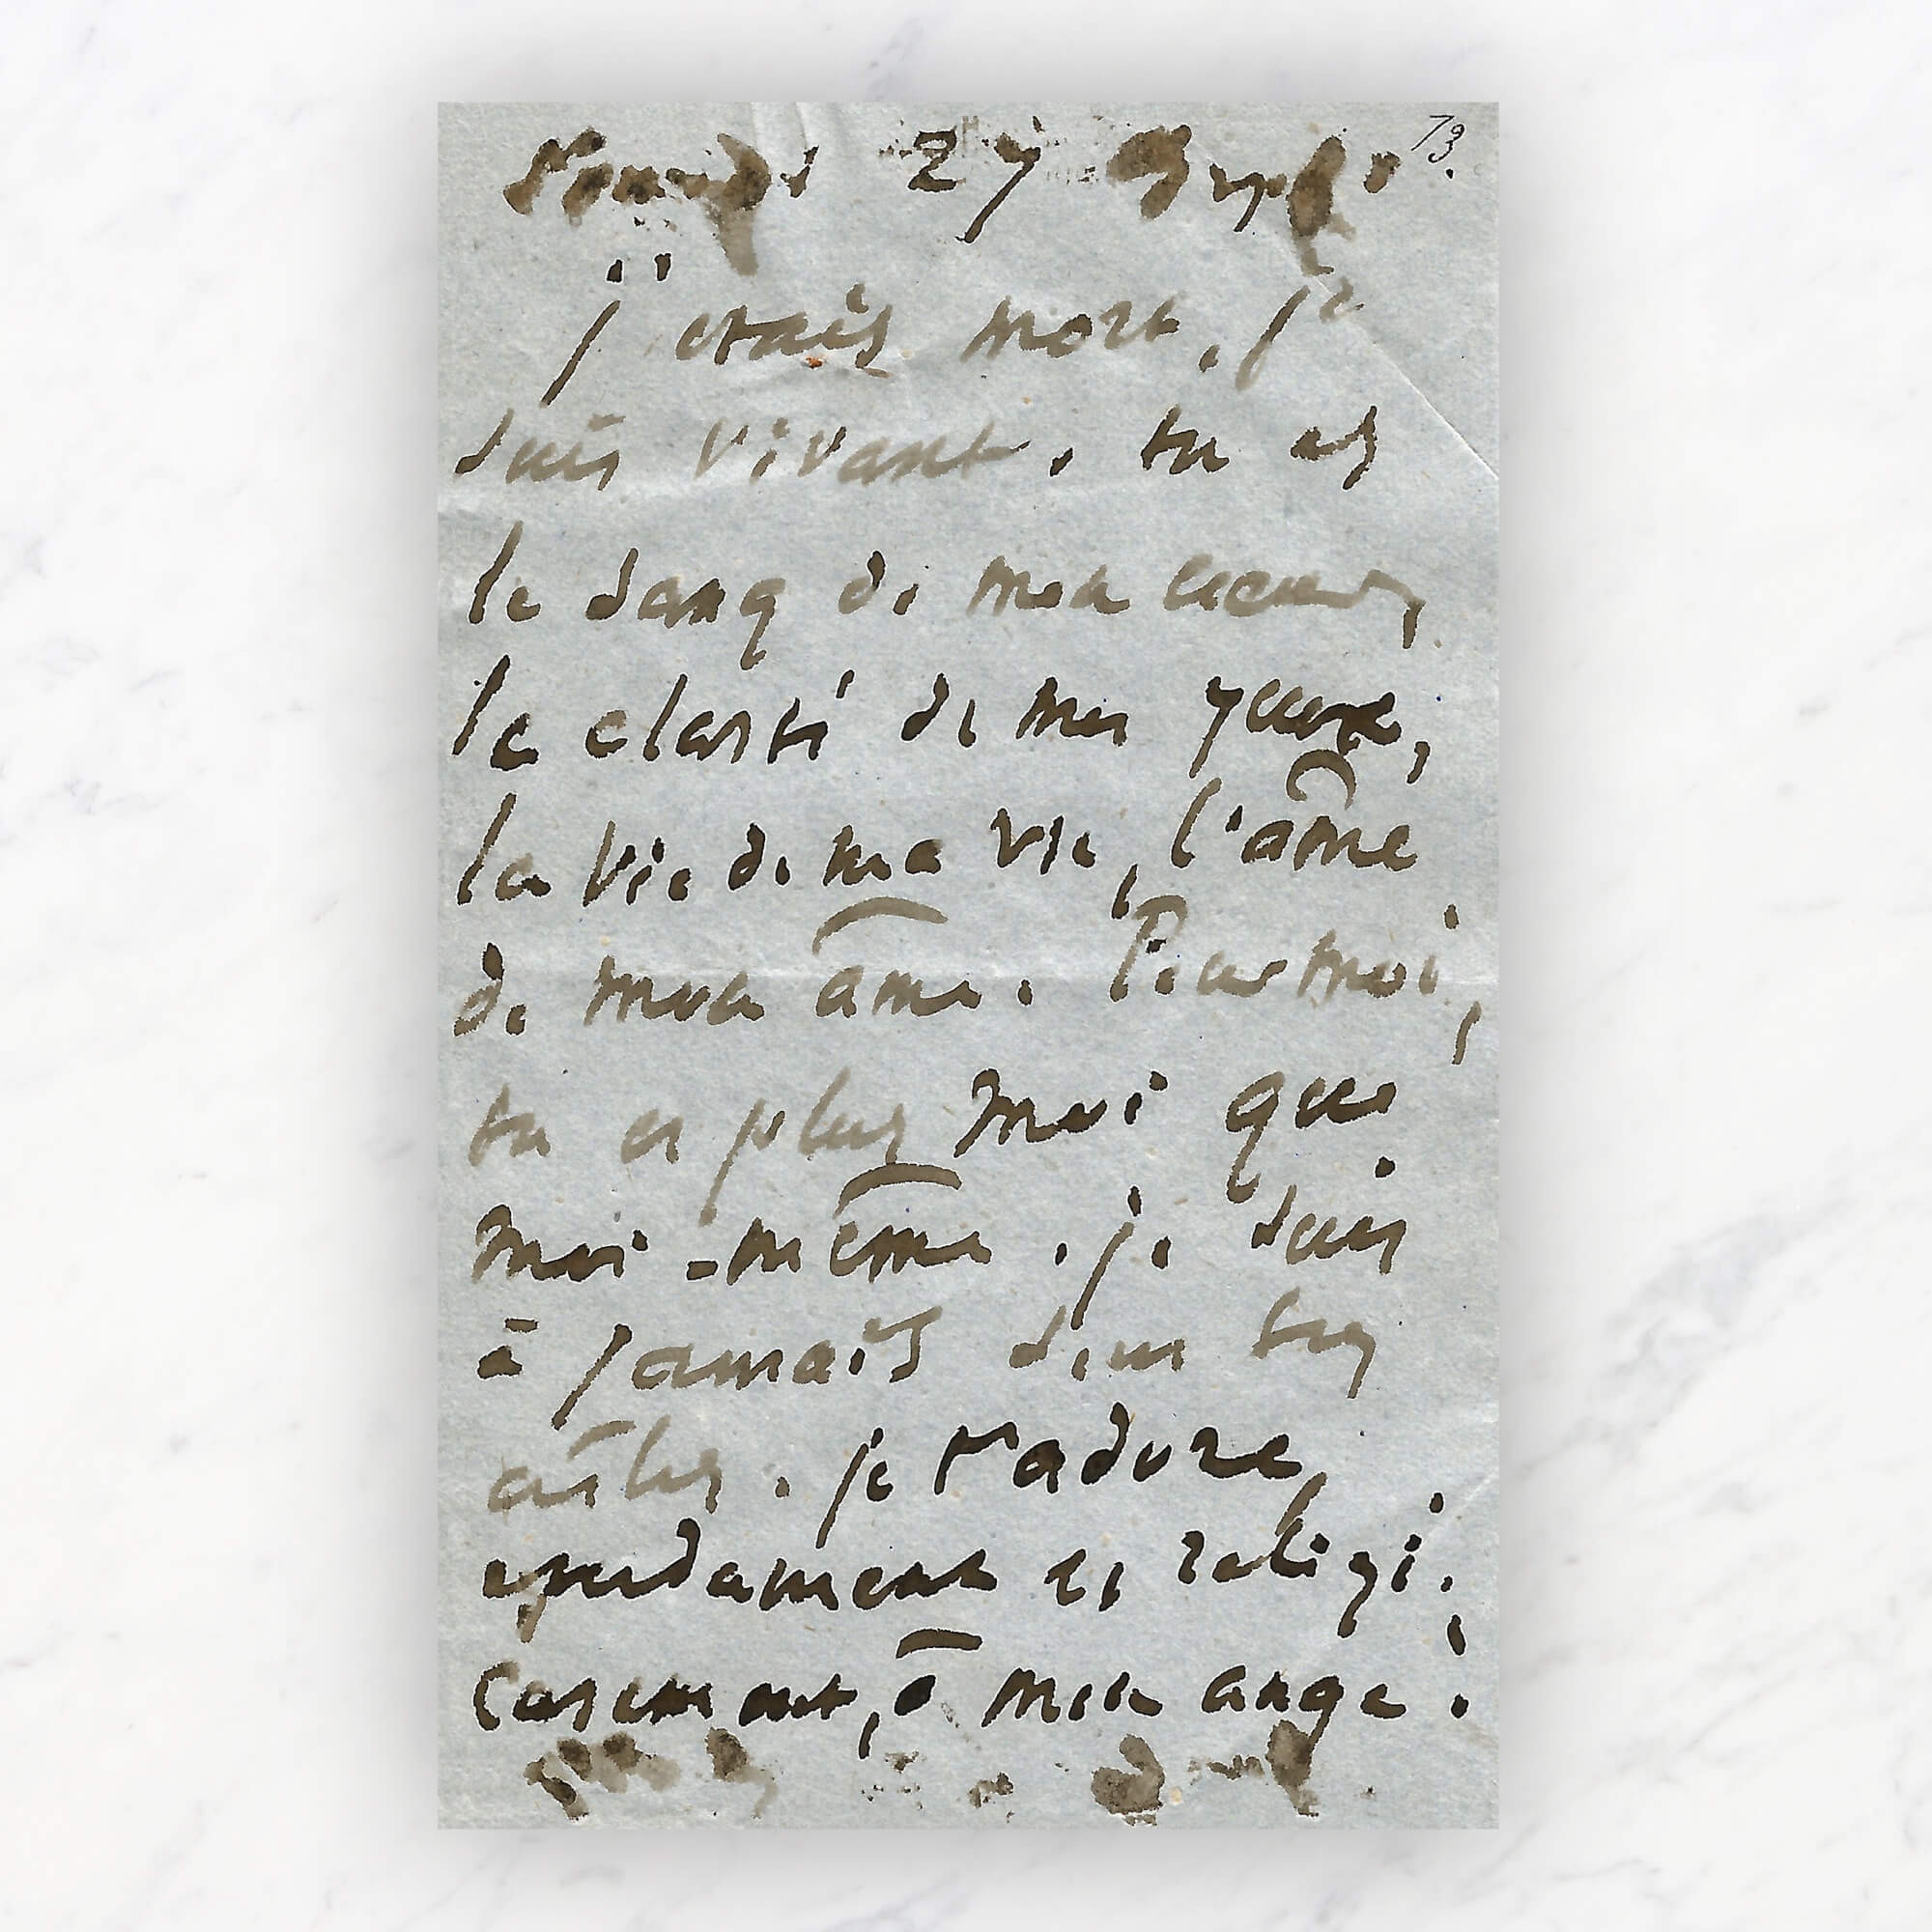 73.
27
j'étais mort, je
suis vivant. tu es
le sang de mon cœur,
la clarté de mes yeux,
la vie de ma vie, l'âme
de mon âme. Pour moi,
tu es plus moi que
moi-même. je suis
à jamais sous tes
ailes. je t'adore
éperdument et religi-
eusement, ô mon ange !